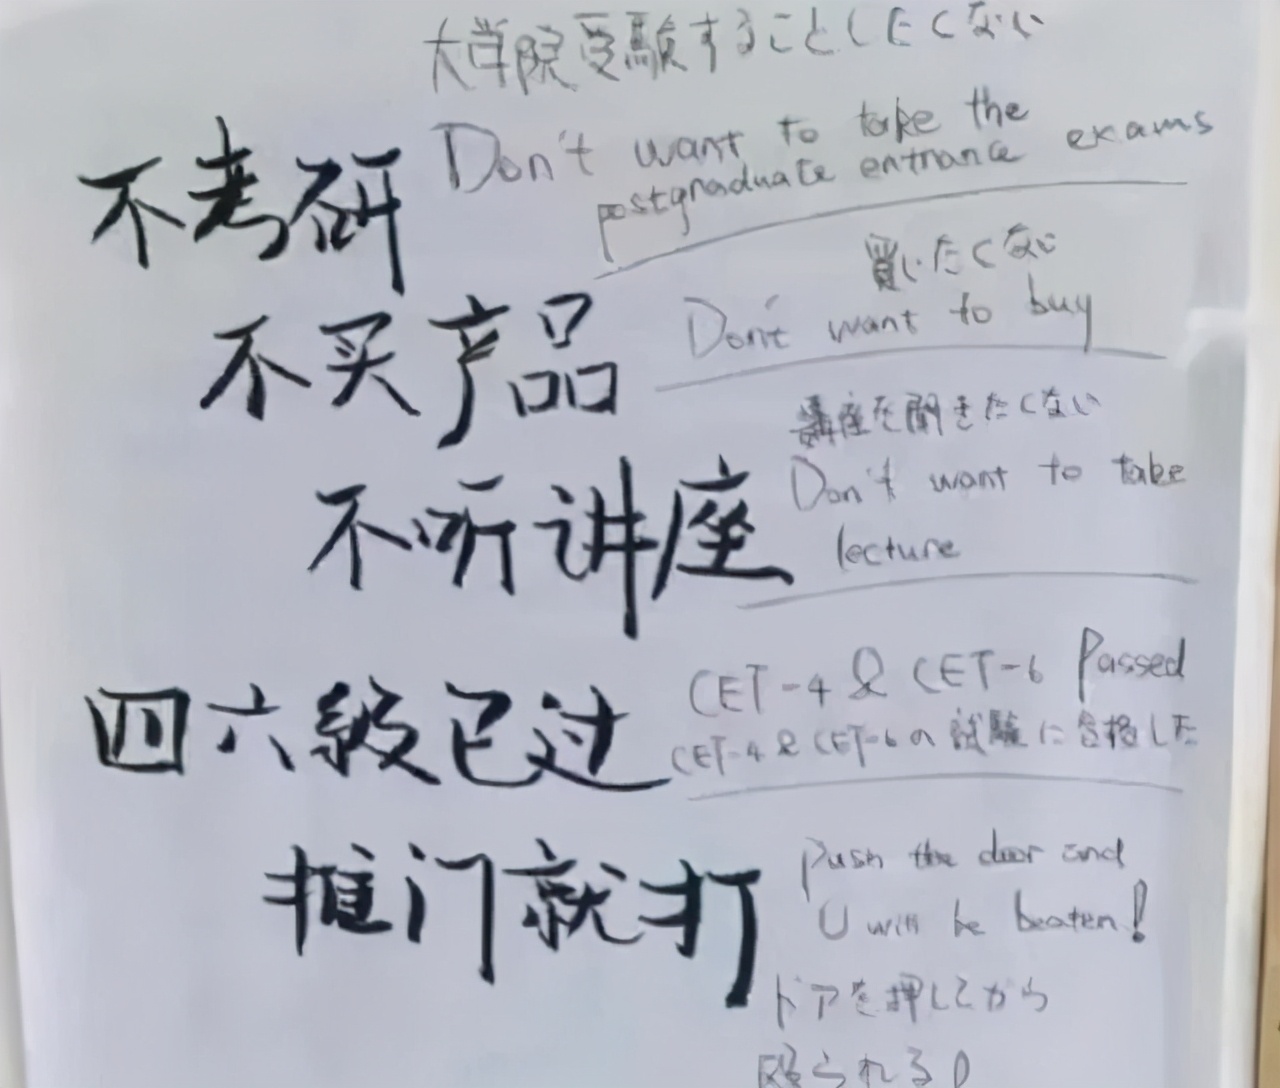 大学院受験することしたくない
不考研
Don't want to take the
postgraduate entrance exams
買いたくない
不买产品
Don't want to buy
講座を聞きたくない
不听讲座
Don't want to take
lecture
四六级已过
CET-4 & CET-6 Passed
CET-4 & CET-6の試験に合格した
推门就打
Push the door and
U will be beaten!
ドアを押してから
殴られる